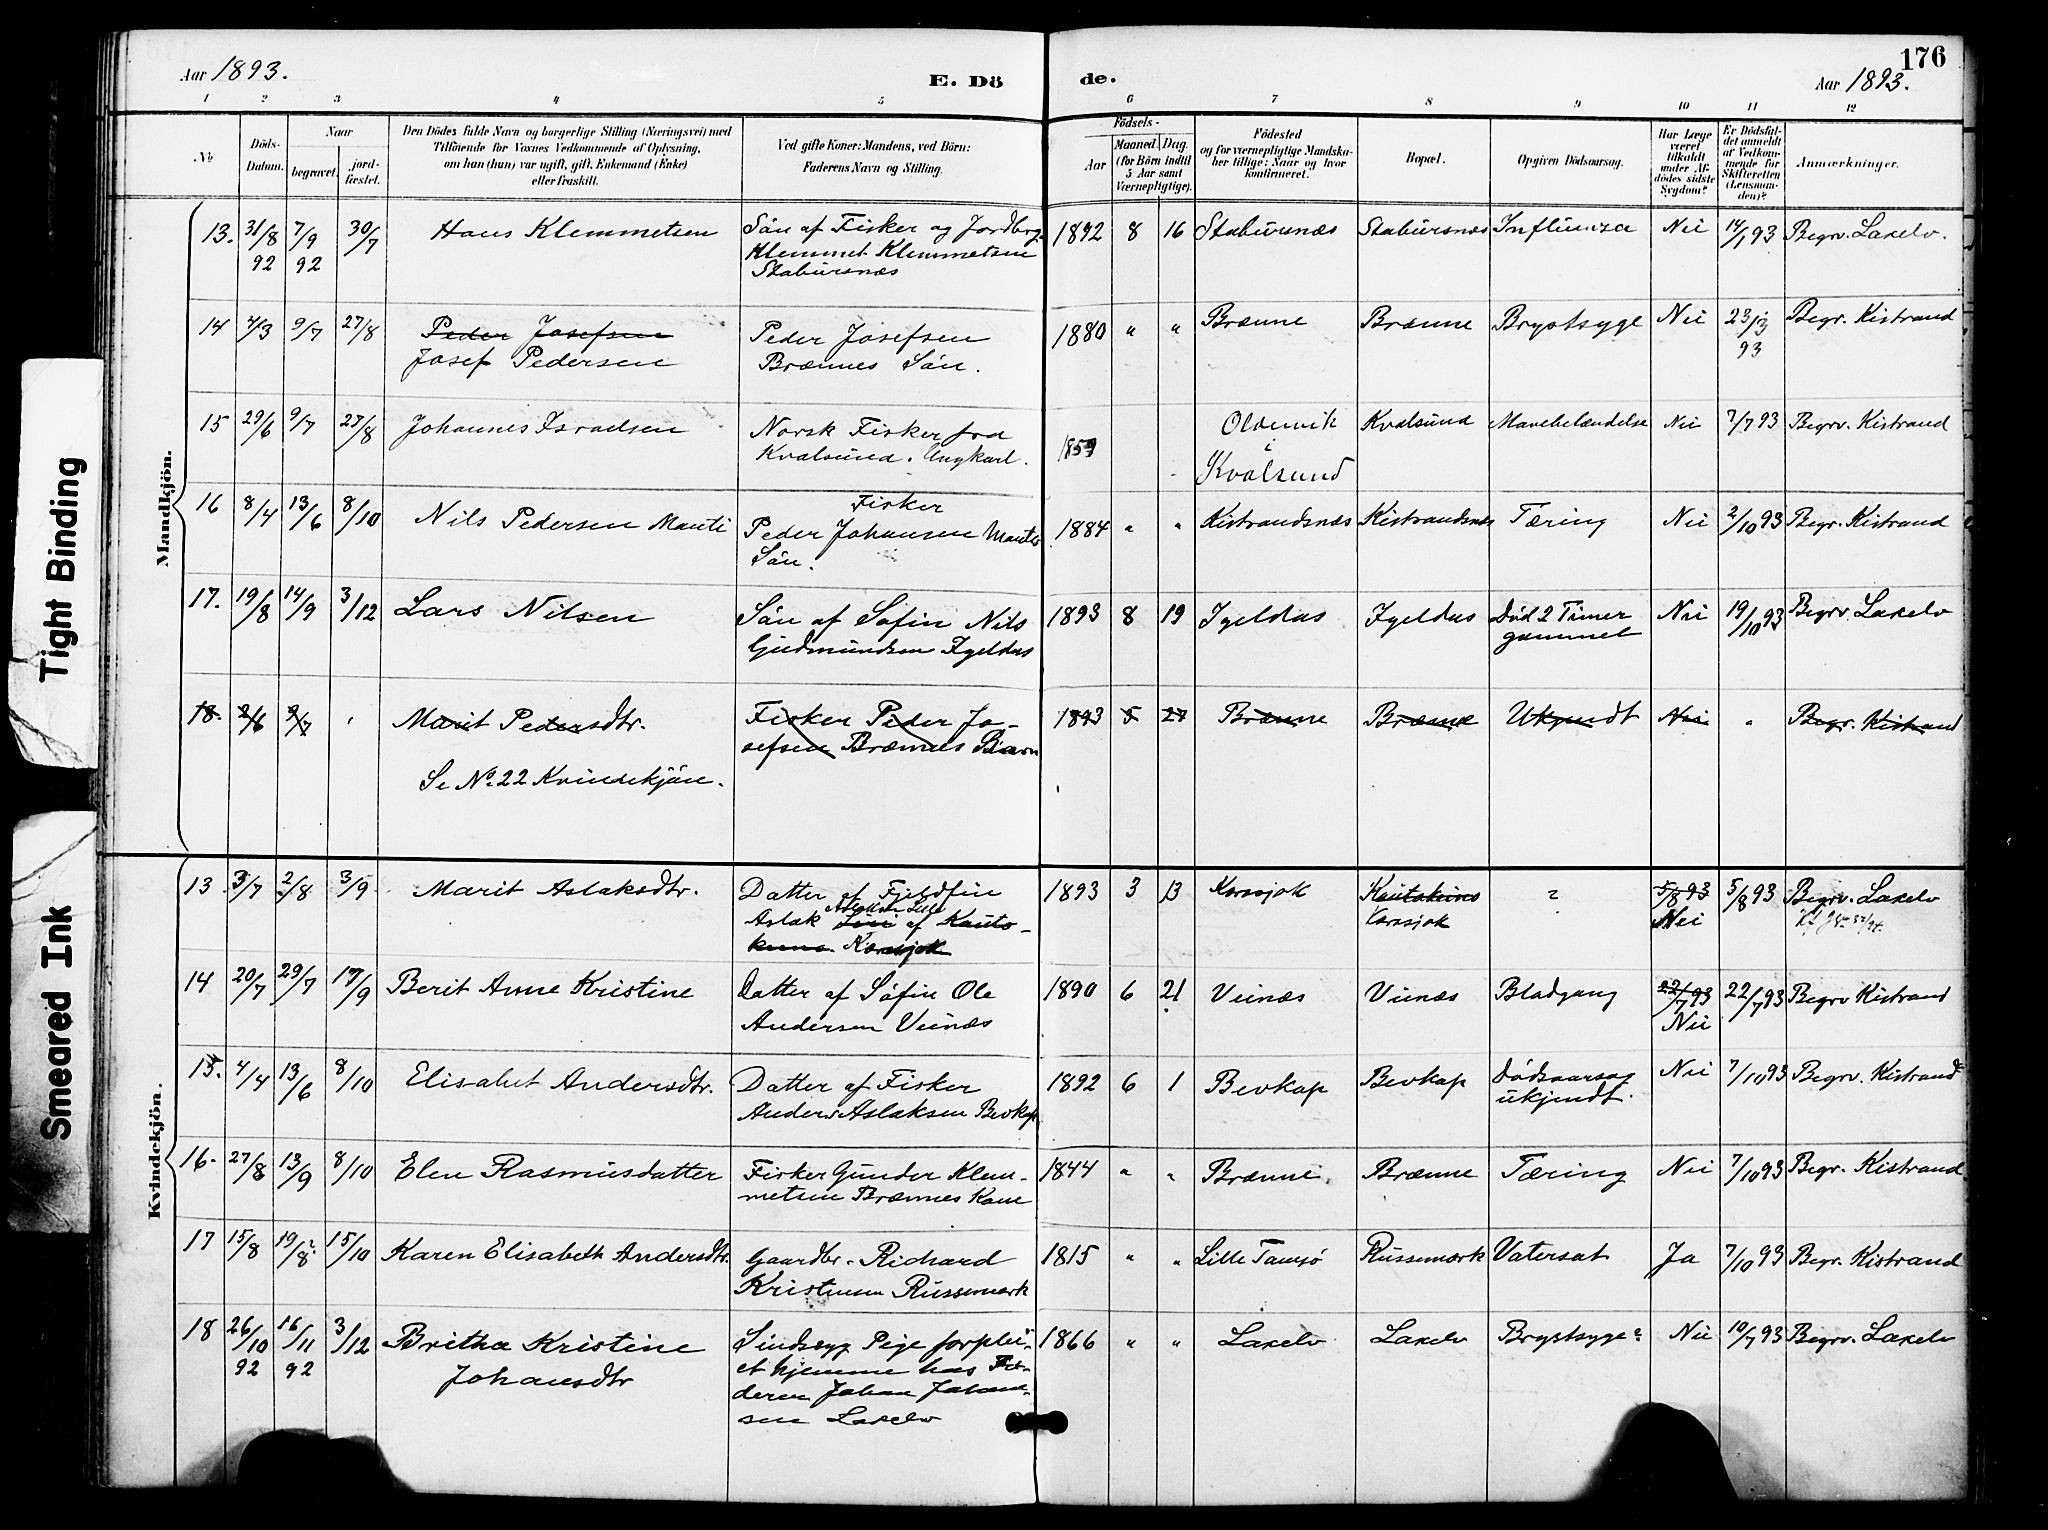 176
Aar 1893. E. Dö de. Aar 1893.
1 2 3 4 5 6 7 8 9 10 11 12
No.
Döds-Datum.
Naar
begravet.
jord-fæstet.
Den Dödes fulde Navn og borgerlige Stilling (Næringsvei) med
Tilföiende for Voxnes Vedkommende af Oplysning,
om han (hun) var ugift, gift, Enkemand (Enke)
eller fraskilt.
Ved gifte Koner: Mandens, ved Börn:
Faderens Navn og Stilling.
Födsels-
Aar
Maaned. Dag.
(for Börn indtil
5 Aar samt
Værnepligtige).
Födested
og for værnepligtige Mandska-
ber tillige: Naar og hvor
konfirmeret.
Bopæl.
Opgiven Dödsaarsag.
Har Læge
været
tilkaldt
under Af-
dödes sidste
Sygdom?
Er Dödsfal-
det anmeldt
af Vedkom-
mende for
Skifteretten
(Lensman-
den)?
Anmærkninger.
Mandkjön.
13. 31/8 92 7/9 92 30/7 Hans Klemmetsen Sön af Fisker og Jordbrg. 1892 8 16 Stabursnæs Stabursnæs Influenza Nei 14/1 93 Begrv. Laxelv.
Klemmet Klemmetsen
Stabursnæs
14 4/3 9/7 27/8 Peder Josefsen Peder Josefsen 1880 " " Brænne Brænne Brystsyge Nei 23/3 93 Begr. Kistrand
Josef Pedersen Brænnes Sön.
15 29/6 9/7 27/8 Johannes Israelsen Norsk Fisker fra Oldervik Kvalsund Nei 7/7 93 Begrv. Kistrand
Kvalsund. Ungkarl. i
Kvalsund
16 8/4 13/6 8/10 Nils Pedersen Manti Fisker 1884 " " Kistrandsnæs Kistrandsnæs Tæring Nei 2/10 93 Begr. Kistrand
Peder Johansen
Sön.
17. 19/8 14/9 3/12 Lars Nilsen Sön af Söfin Nils 1893 8 19 Igeldas Igeldas död 2 Timer Nei 19/10 93 Begrv Laxelv
Gudmundsen Igeldas gammel
18. 2/6 9/7 Marit Pedersdtr. Fisker Peder Jo- 1893 5 27 Brænne Brænne Ukjendt Nei " Begr. Kistrand
sefsen Brænnes Barn
Se No. 22 Kvindekjön.
Kvindekjön.
13 3/7 2/8 3/9 Marit Aslaksdtr. Datter af Fjeldfin 1893 3 13 Karasjok Kautokeino ? 5/8 93 5/8 93 Begrv. Laxelv
Aslak af Kauto- Karasjok Nei
Karasjok
14 20/7 29/7 17/9 Berit Anne Kristine Datter af Söfin Ole 1890 6 21 Veinæs Veinæs Blodgang 22/7 93 22/7 93 Begrv Kistrand
Andersen Veinæs Nei
15. 4/4 13/6 8/10 Elisabet Andersdtr. Datter af Fisker 1892 6 1 Bevkap Bevkap Dödsaarsag Nei 7/10 93 Begrv. Kistrand
Anders Aslaksen Bevkap ukjendt.
16. 27/8 13/9 8/10 Elen Rasmusdatter Fisker Gunder Klem- 1844 " " Brænne Brænne Tæring Nei 7/10 93 Begr. Kistrand
metsen Brænnes Kone
17 15/8 19/8? 15/10 Karen Elisabeth Andersdtr. Gaardbr. Richard 1815 " " Lille Tamsö Russemark Vatersot Ja 7/10 93 Begr. Kistrand
Kristensen Russemark
18 26/10 92 16/11 92 3/12 Britha Kristine Sindssyg Pige forplei- 1866 " " Laxelv Laxelv Brystsyge? Nei 19/7 93 Begrv. Laxelv
Johansdtr et hjemme hos Fa-
deren Johan Johan-
sen Laxelv
Tight Binding
Smeared Ink